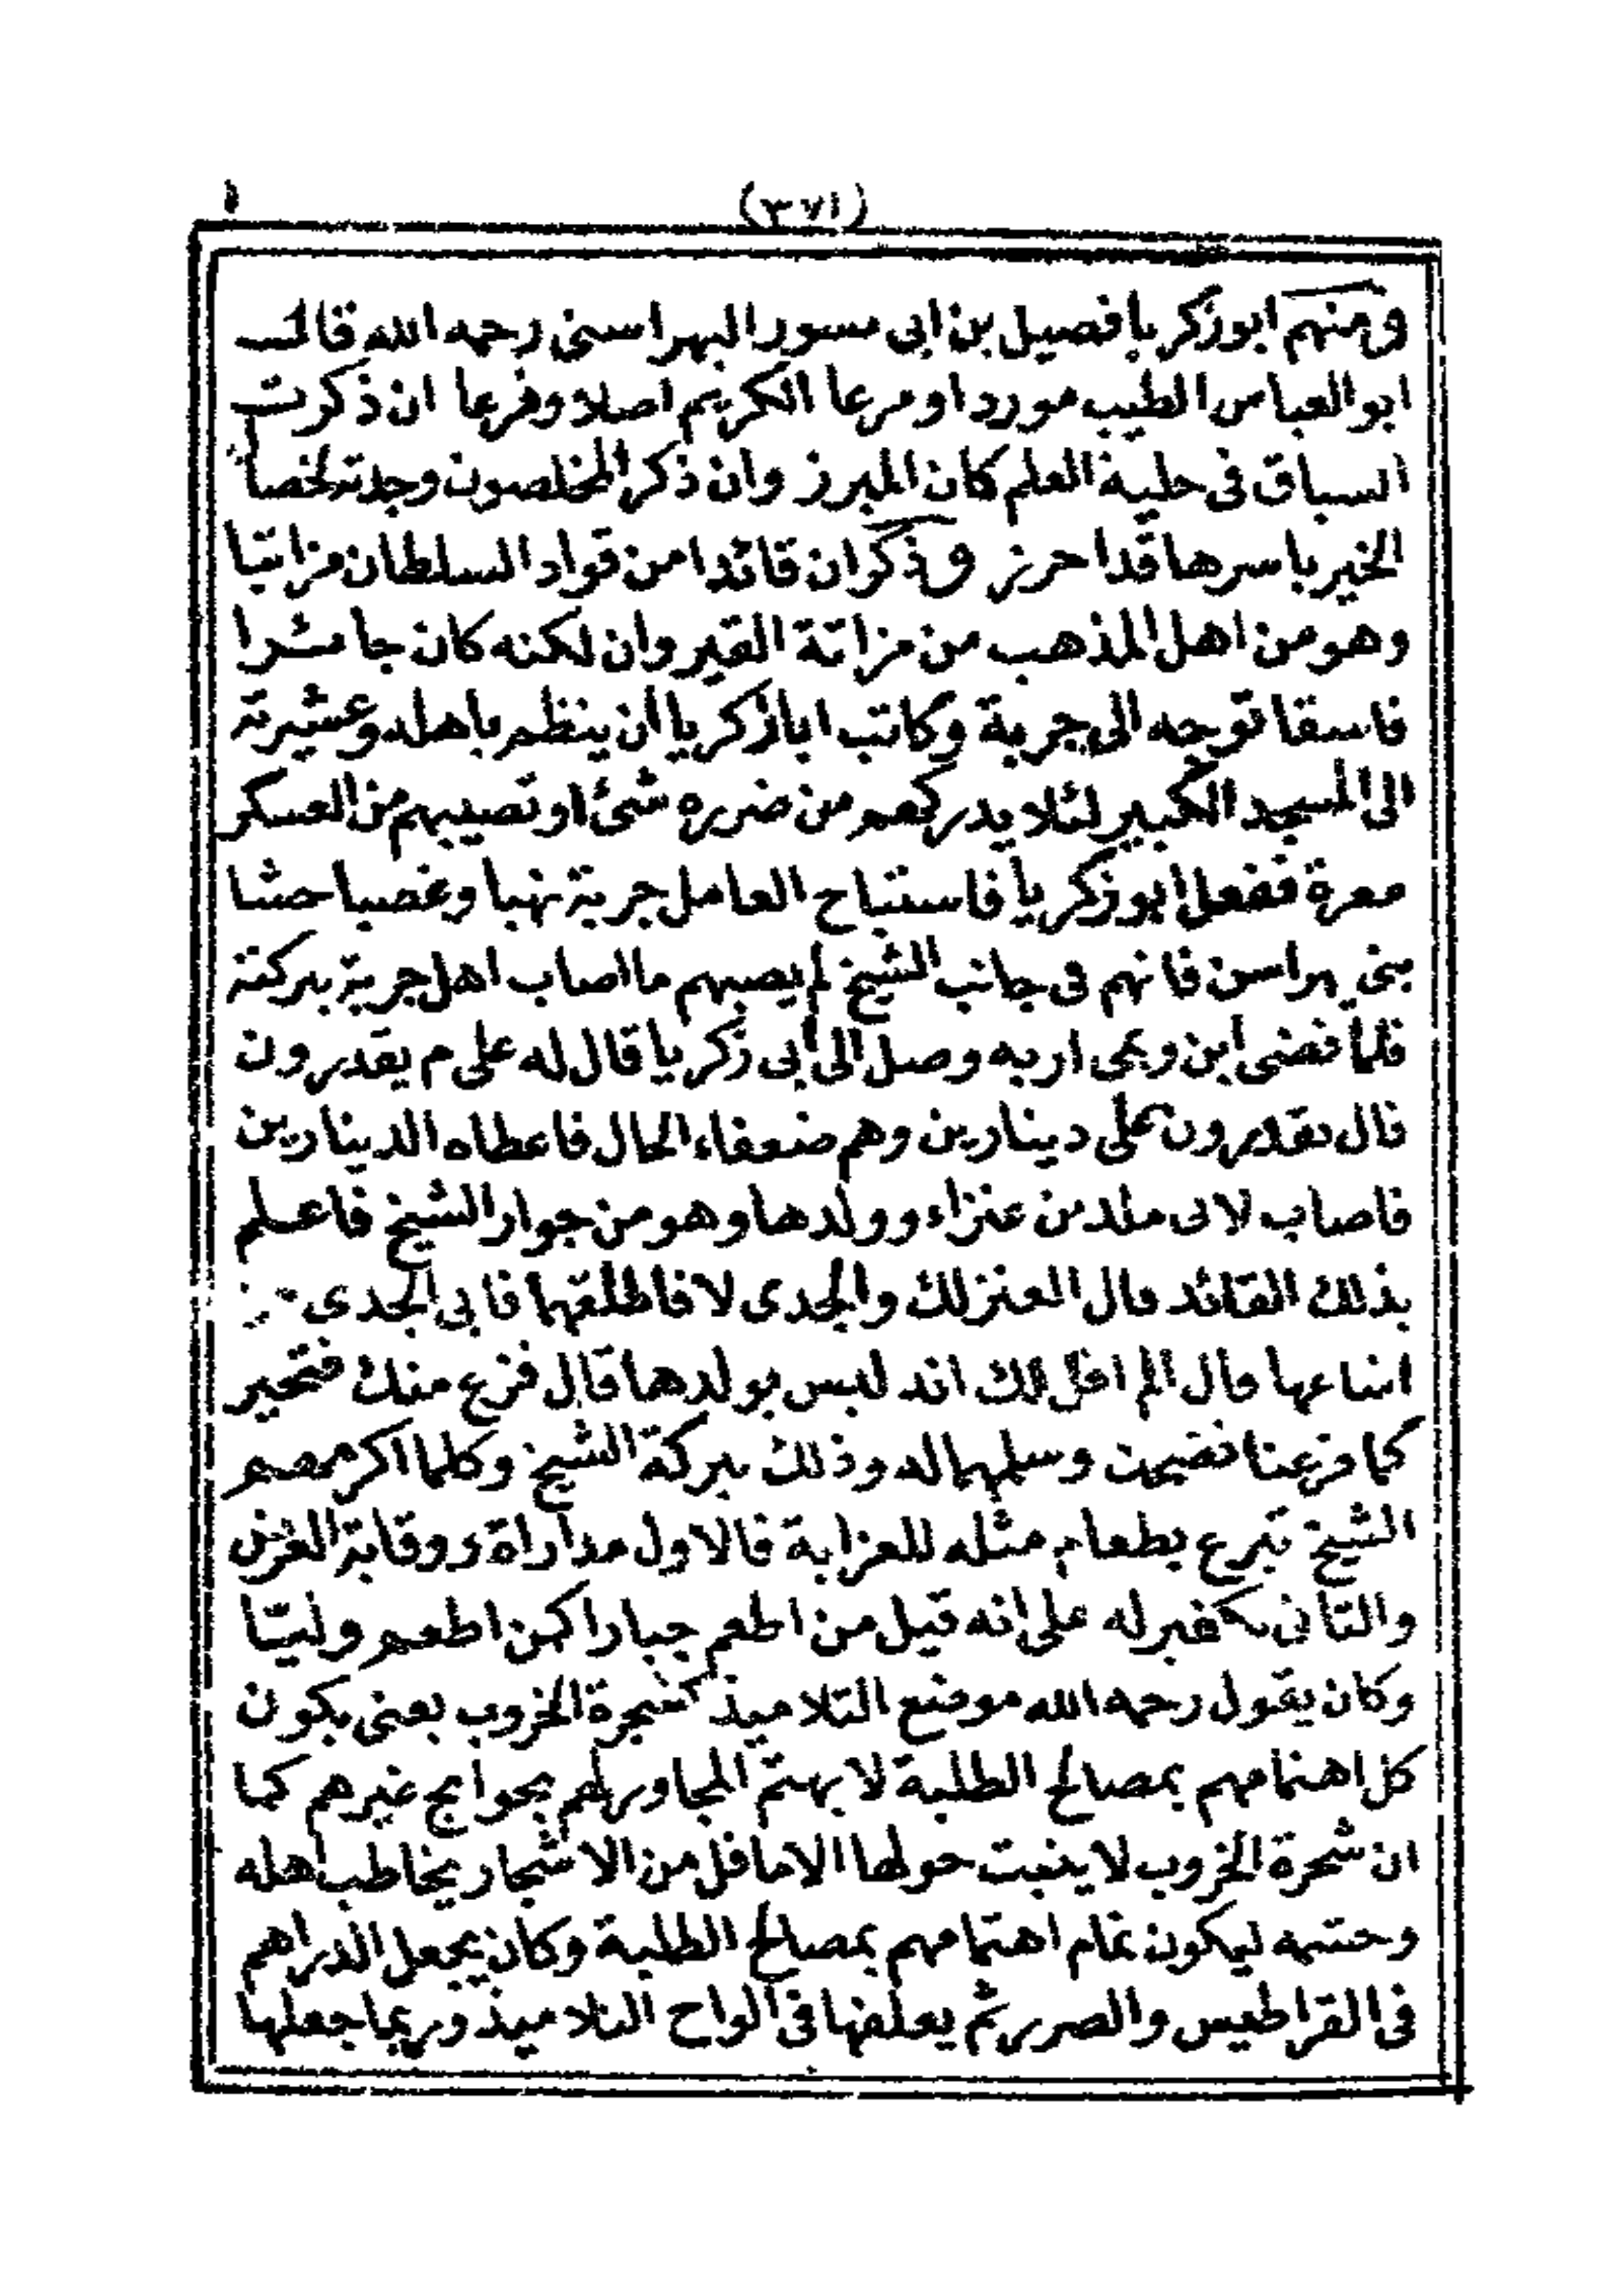 (٣٧١)
ومنهم ابوزكريا فصيل بن ابى مسور اليهراسنى رحمه الله قالـ
ابوالعباس الطيب موردا ومرعا الكريم اصلا وفرعا ان ذكرت
السباق فى حلية العلم كان المبرز وان ذكر المخلصون وجدته
الخير باسرها قد احرز وذكر ان قائدا من قواد السلطان مزاتيا
وهو من اهل المذهب من مزاتة القيروان لكنه كان جا مشرا
فاسقا توجه الى جربة وكاتب ابا زكريا ان ينظم باهله وعشيرته
الى المسجد الكبير لئلا يدركهم من ضرره شئ او تصيبهم من العسكر
معرة ففعل ابوزكريا فاستباح العامل جربة نهبا وغصبا حشا
بنى يهراسن فانهم فى جانب الشيخ لم يصبهم ما اصاب اهل جربة ببركته
فلما قضى ابن ويمى اربه وصل الى ابى زكريا قال له على م يقدرون
قال يقدرون على دينارين وهم ضعفاء الحال فاعطاه الدينارين
فاصاب لابى من عنزاء وولدها وهو من جوار الشيخ فاعلم
بذلك القائد قال العنز لك والجدى لا فاطلقهما فابى الجدى
اتباعها قال الم اقل لك انه ليس بولدها قال فزع منك فتحير
كما فزعنا فضحك وسلمهما له وذلك ببركة الشيخ وكلما اكرمهم
الشيخ تبرع بطعام مثله للعزابة فالاول مداراة ووقاية العرض
والثانى تكفير له على انه قيل من اطعم جبارا كمن اطعم وليتا
وكان يقول رحمه الله موضع التلاميذ كشجرة الخروب يعنى يكون
كل اهتمامهم بمصالح الطلبة لا يهتم المجاور لهم بحوايج غيرهم كما
ان شجرة الخروب لا ينبت حولها الا ما قل من الاشجار يخاطب اهله
وحشمه ليكون تمام اهتمامهم بمصالح الطلبة وكان يجعل الدراهم
فى القراطيس والصرر ثم يعلقها فى الواح التلاميذ وربما جعلها